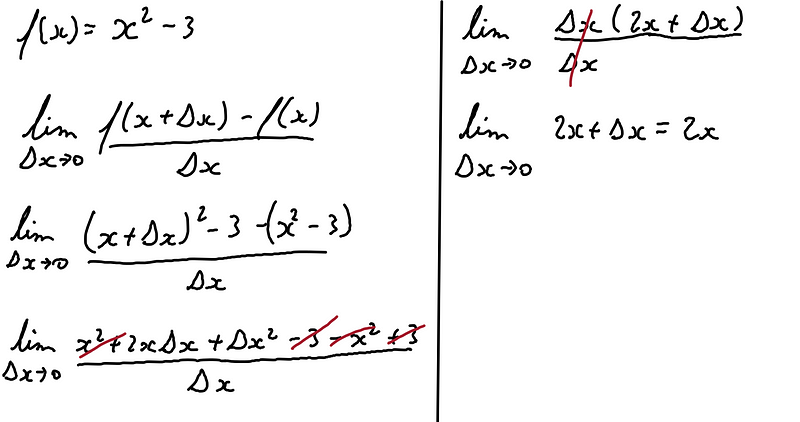 f(x) = x² - 3
lim Δx→0 (f(x + Δx) - f(x)) / Δx
lim Δx→0 ((x + Δx)² - 3 - (x² - 3)) / Δx
lim Δx→0 (x² + 2xΔx + Δx² - 3 - x² + 3) / Δx
lim Δx→0 (Δx (2x + Δx)) / Δx
lim Δx→0 2x + Δx = 2x